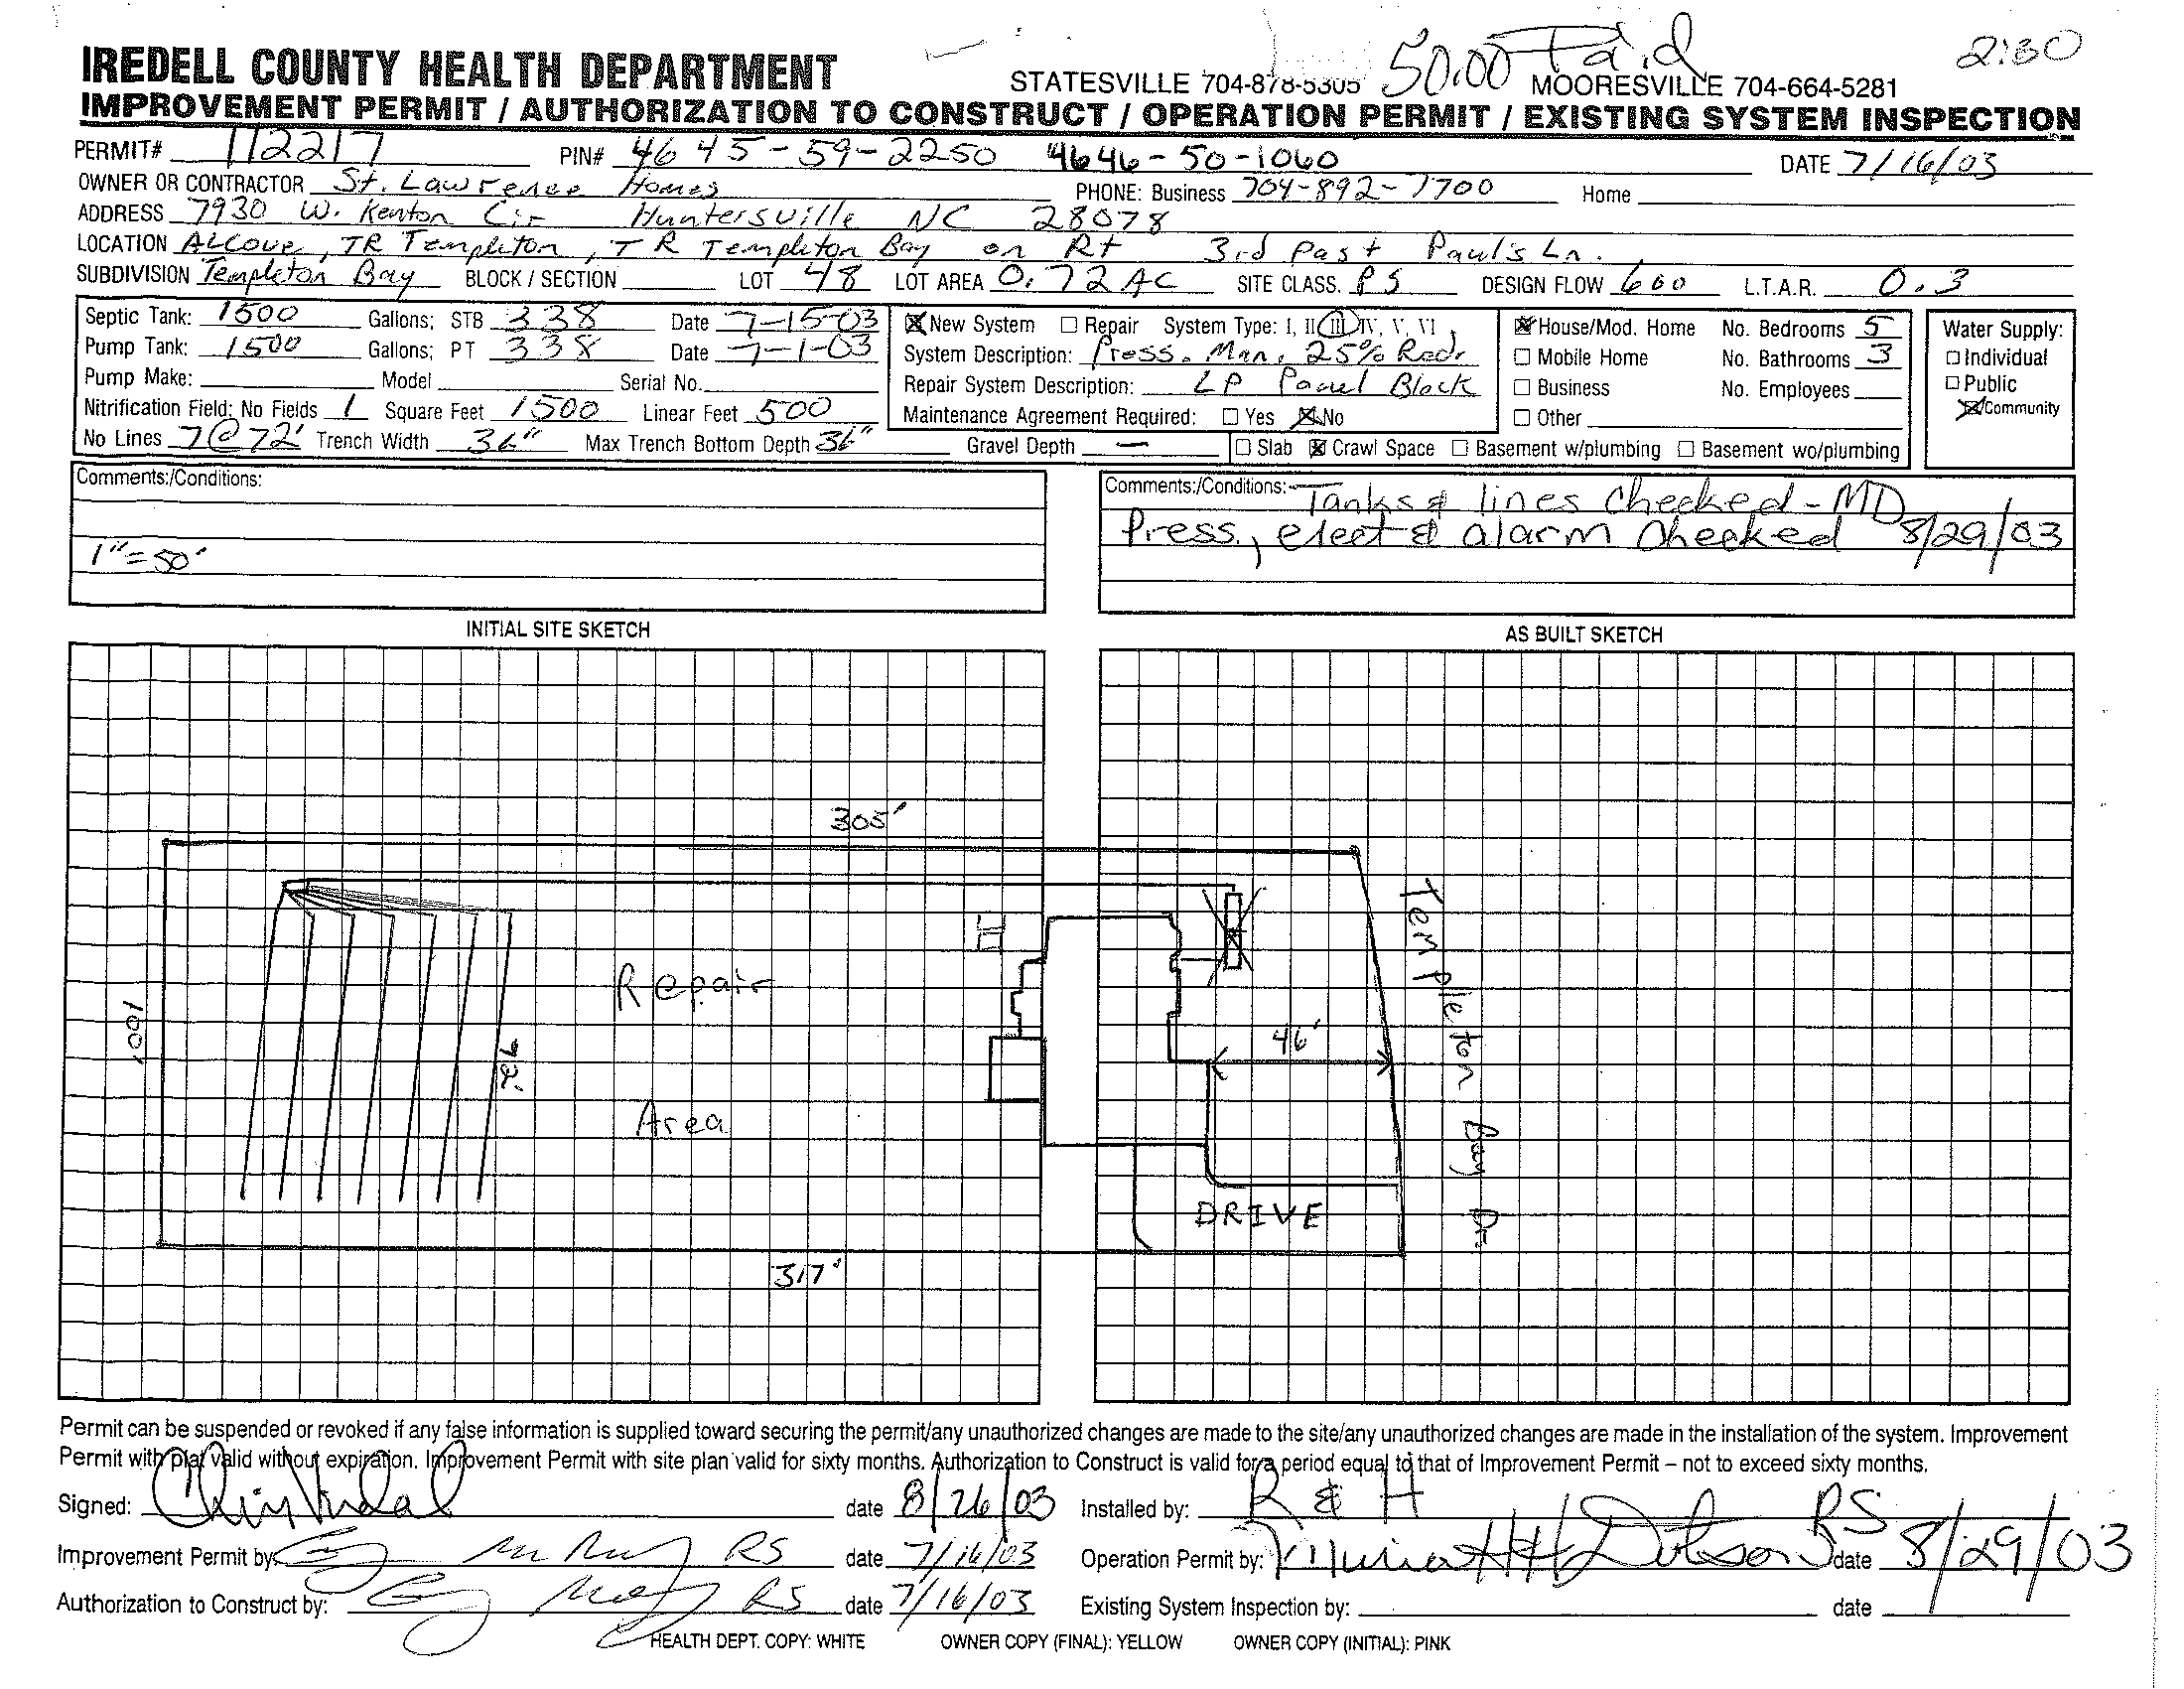 50.00 Paid 2:30
IREDELL COUNTY HEALTH DEPARTMENT STATESVILLE 704-878-5305 MOORESVILLE 704-664-5281
IMPROVEMENT PERMIT / AUTHORIZATION TO CONSTRUCT / OPERATION PERMIT / EXISTING SYSTEM INSPECTION
PERMIT# 112217 PIN# 4645-59-2250 4646-50-1060 DATE 7/16/03
OWNER OR CONTRACTOR St. Lawrence Homes PHONE: Business 704-892-7700 Home
ADDRESS 7930 W. Kenton Cir Huntersville NC 28078
LOCATION ALCOVE, TR Templeton, TR Templeton Bay on Rt 3rd Past Paul's Ln.
SUBDIVISION Templeton Bay BLOCK / SECTION LOT 48 LOT AREA 0.72 AC SITE CLASS. PS DESIGN FLOW 600 L.T.A.R. 0.3
Septic Tank: 1500 Gallons; STB 338 Date 7-15-03
Pump Tank: 1500 Gallons; PT 338 Date 7-1-03
Pump Make: Model Serial No.
Nitrification Field: No Fields 1 Square Feet 1500 Linear Feet 500
No Lines 7@72' Trench Width 36" Max Trench Bottom Depth 36" Gravel Depth —
New System Repair System Type: I, II, III, IV, V, VI
System Description: Press. Man. 25% Redr
Repair System Description: LP Panel Block
Maintenance Agreement Required: Yes No
House/Mod. Home No. Bedrooms 5
Mobile Home No. Bathrooms 3
Business No. Employees
Other
Slab Crawl Space Basement w/plumbing Basement wo/plumbing
Water Supply:
Individual
Public
Community
Comments:/Conditions:
1"=50'
Comments:/Conditions: Tanks & lines checked - MD
Press., elect & alarm checked 8/29/03
INITIAL SITE SKETCH
AS BUILT SKETCH
305'
Templeton Bay Dr
Repair
100'
46'
72'
Area
DRIVE
317'
Permit can be suspended or revoked if any false information is supplied toward securing the permit/any unauthorized changes are made to the site/any unauthorized changes are made in the installation of the system. Improvement
Permit with plat valid without expiration. Improvement Permit with site plan valid for sixty months. Authorization to Construct is valid for a period equal to that of Improvement Permit – not to exceed sixty months.
Signed: date 8/26/03 Installed by: R & H
Improvement Permit by: RS date 7/16/03 Operation Permit by: Dotson RS date 8/29/03
Authorization to Construct by: RS date 7/16/03 Existing System Inspection by: date
HEALTH DEPT. COPY: WHITE OWNER COPY (FINAL): YELLOW OWNER COPY (INITIAL): PINK